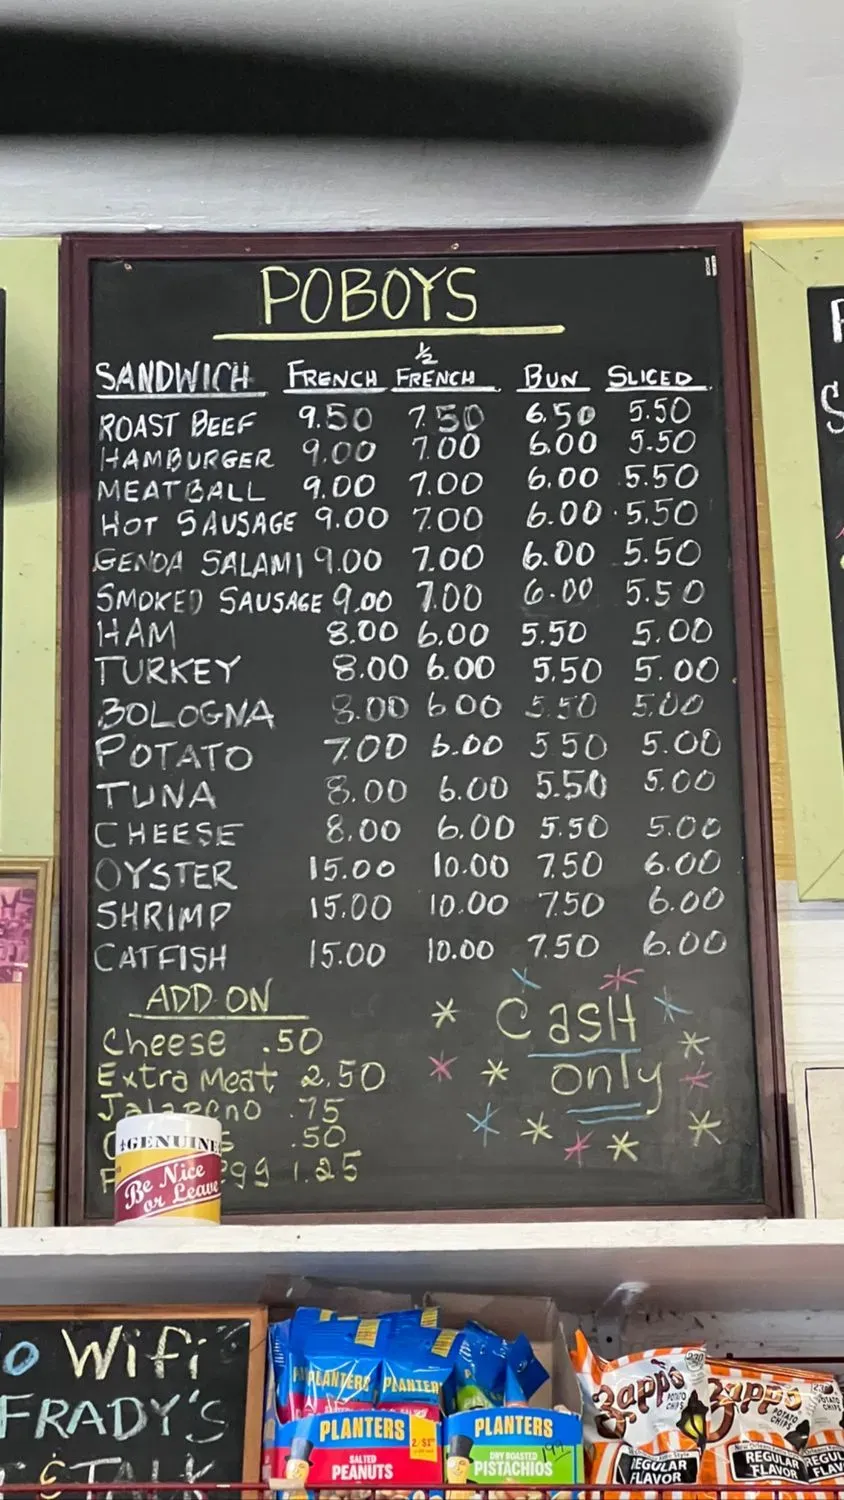 POBOYS
SANDWICH FRENCH ½ FRENCH BUN SLICED
ROAST BEEF 9.50 7.50 6.50 5.50
HAMBURGER 9.00 7.00 6.00 5.50
MEATBALL 9.00 7.00 6.00 5.50
HOT SAUSAGE 9.00 7.00 6.00 5.50
GENOA SALAMI 9.00 7.00 6.00 5.50
SMOKED SAUSAGE 9.00 7.00 6.00 5.50
HAM 8.00 6.00 5.50 5.00
TURKEY 8.00 6.00 5.50 5.00
BOLOGNA 8.00 6.00 5.50 5.00
POTATO 7.00 6.00 5.50 5.00
TUNA 8.00 6.00 5.50 5.00
CHEESE 8.00 6.00 5.50 5.00
OYSTER 15.00 10.00 7.50 6.00
SHRIMP 15.00 10.00 7.50 6.00
CATFISH 15.00 10.00 7.50 6.00
ADD ON
Cheese .50
Extra Meat 2.50
Jalapeno .75
.50
egg 1.25
Cash
only
GENUINE
Be Nice
or Leave
Wifi
FRADY'S
& TALK
PLANTERS
PLANTERS
PLANTERS
2/$1
SALTED
PEANUTS
PLANTERS
DRY ROASTED
PISTACHIOS
Zapp's
POTATO
CHIPS
REGULAR
FLAVOR
Zapp's
POTATO
CHIPS
REGULAR
FLAVOR